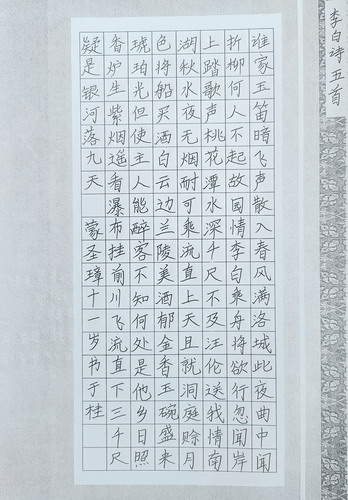 李白诗五首
谁家玉笛暗飞声散入春风满洛城此夜曲中闻
折柳何人不起故园情李白乘舟将欲行忽闻岸
上踏歌声桃花潭水深千尺不及汪伦送我情南
湖秋水夜无烟耐可乘流直上天且就洞庭赊月
色将船买酒白云边兰陵美酒郁金香玉碗盛来
琥珀光但使主人能醉客不知何处是他乡日照
香炉生紫烟遥看瀑布挂前川飞流直下三千尺
疑是银河落九天 蒙圣璋十一岁书于桂